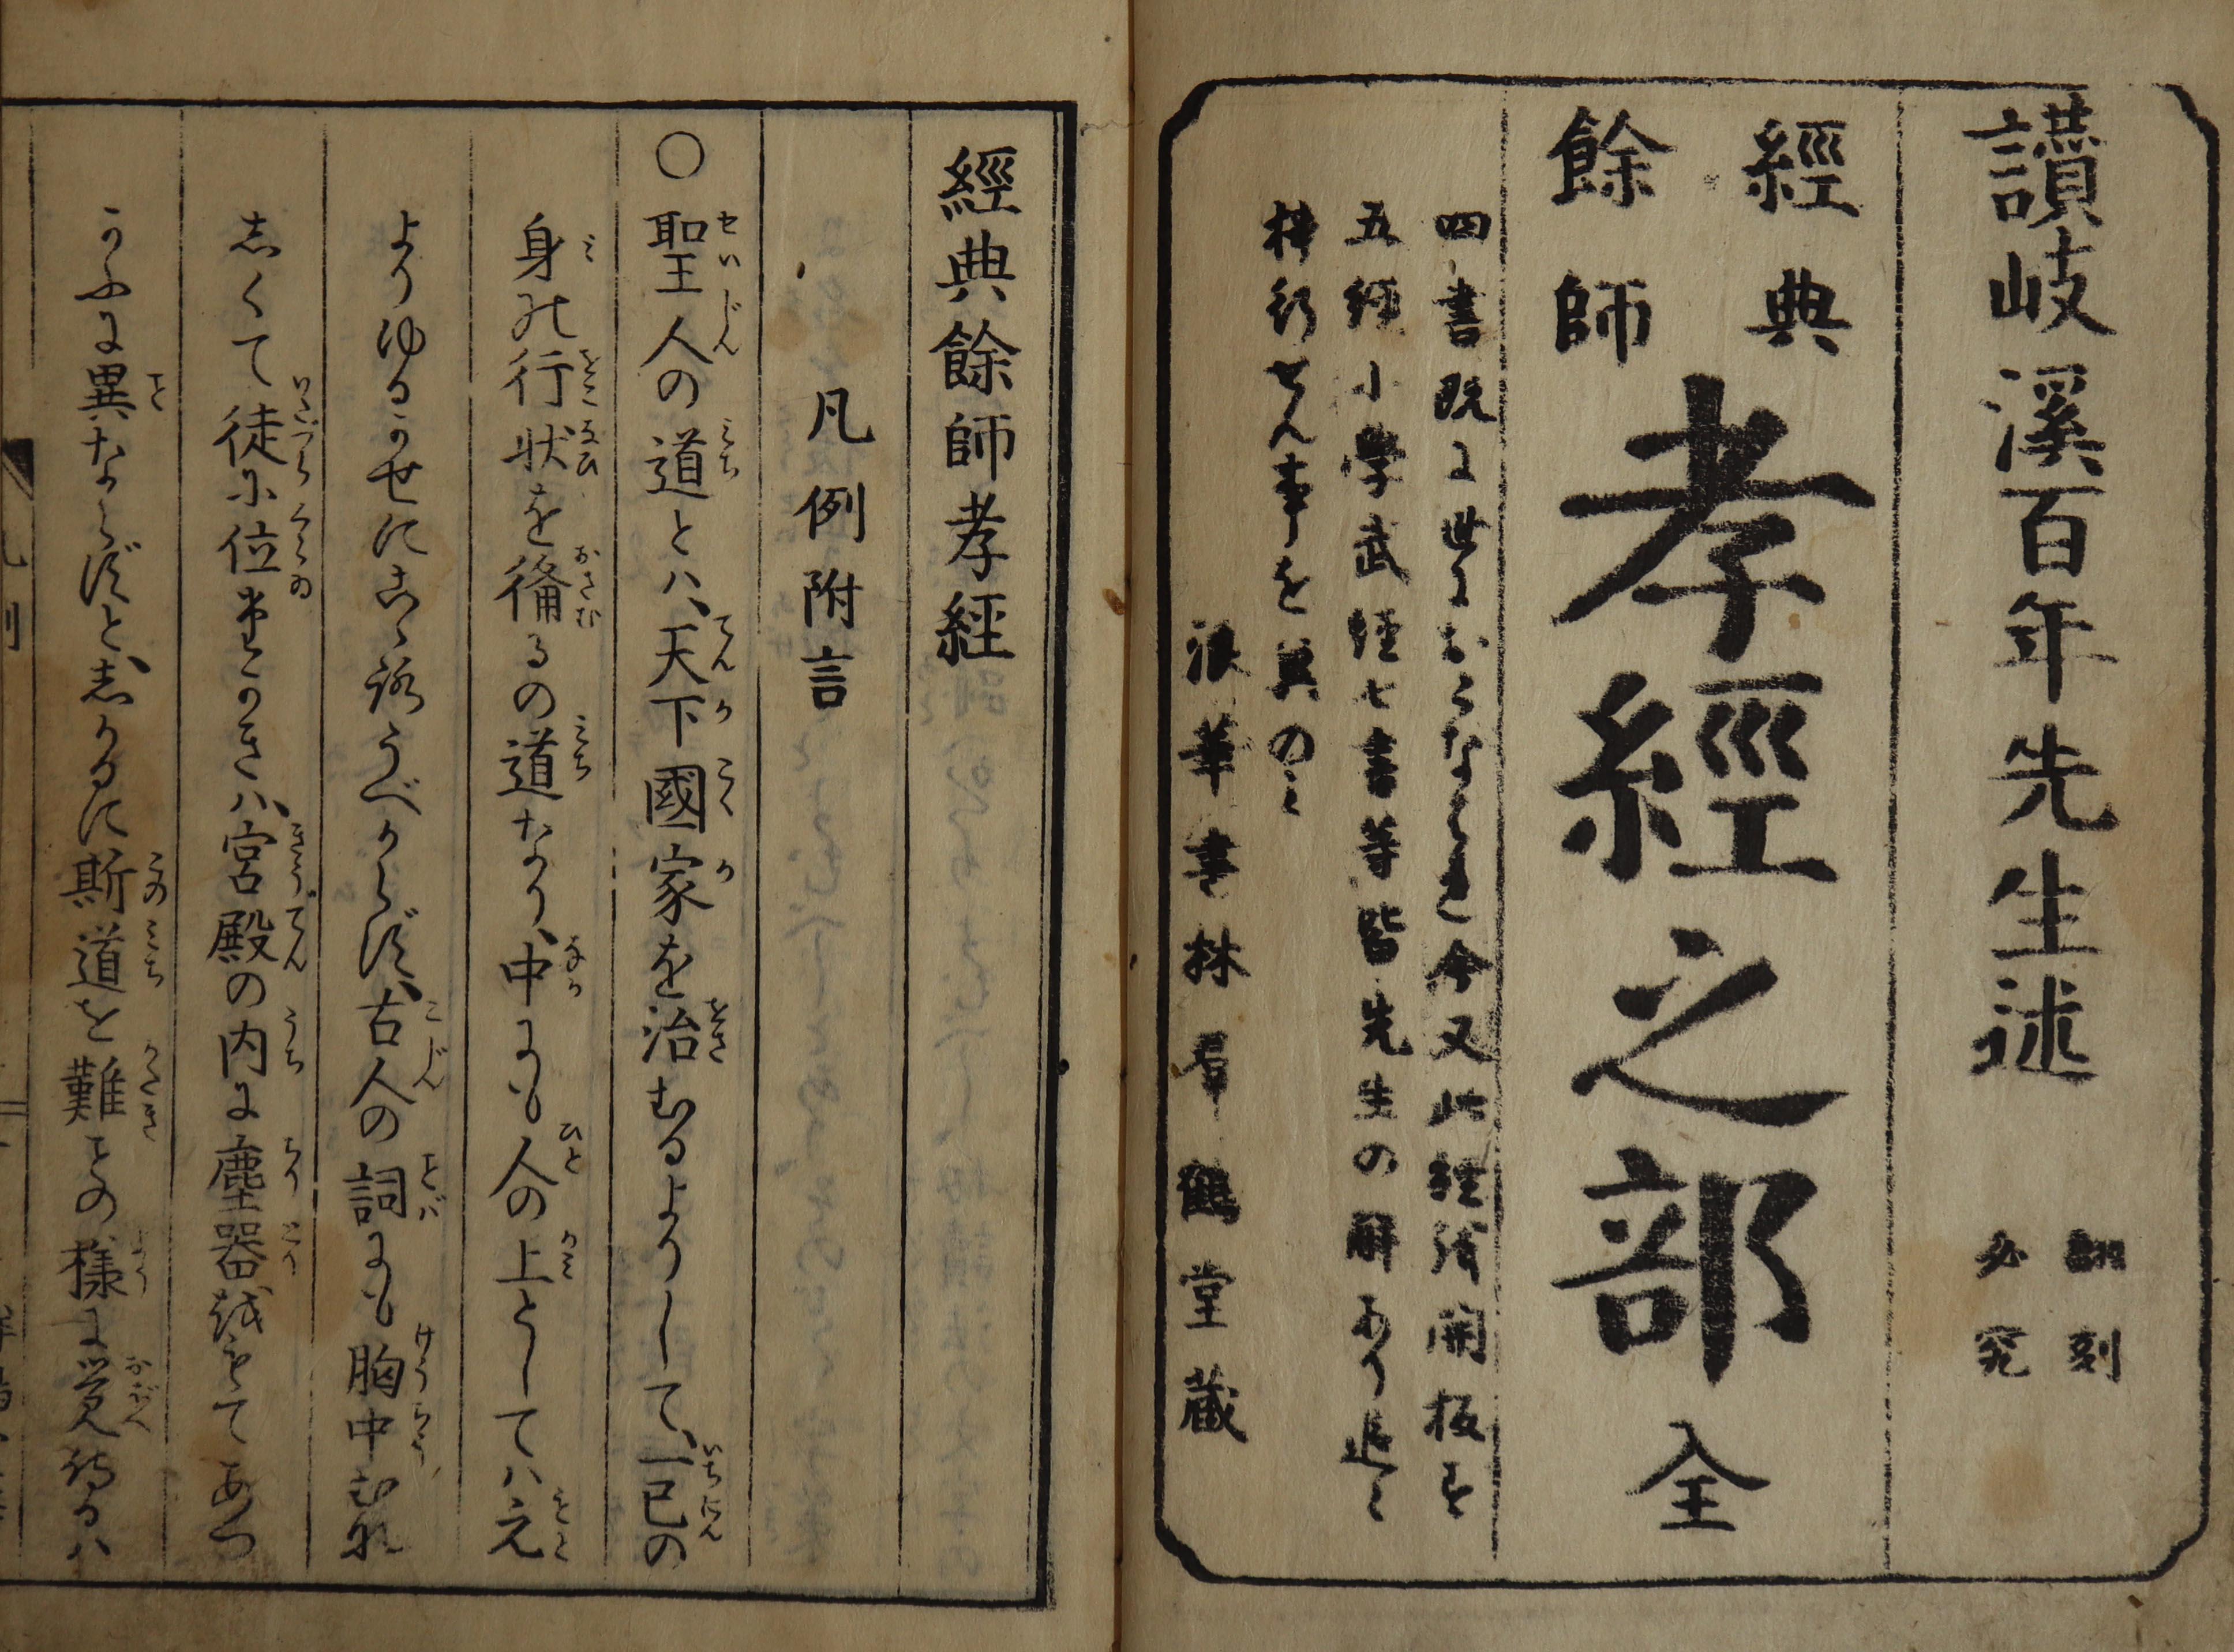 讃岐 溪百年先生述
翻刻
必究
經典
餘師
孝經之部 全
四書既に世におこなはれ今又此經を開板す
五經小學武經七書等皆先生の解あり追々
梓行せん事を冀のミ
浪華書林 羣鶴堂蔵
經典餘師孝經
凡例附言
〇聖人の道とハ、天下國家を治むるよりして、一已の
身の行状を脩るの道なり、中にも人の上としてハ、え
よりゆるかせにこゝろうべからず、古人の詞にも胸中むな
しくて徒に位たかきハ、宮殿の内に塵器をすてあつ
かふに異ならずと、志かるに斯道を難ことの様に覚待るハ